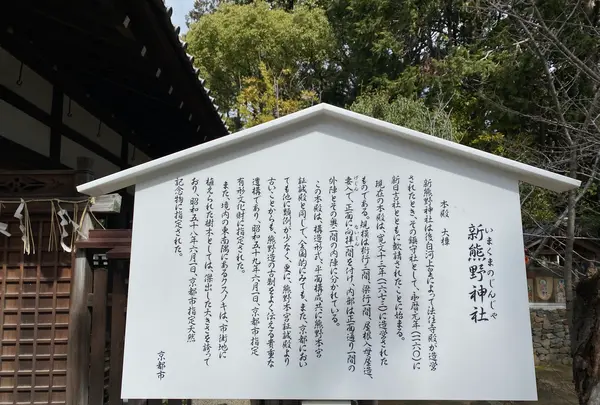 いまくまのじんじゃ
新熊野神社
本殿 大樟
新熊野神社は後白河上皇によって法住寺殿が造営
されたとき、その鎮守社として、永暦元年(一一六〇)に
新日吉社とともに勧請されたことに始まる。
現在の本殿は、寛文十三年(一六七三)に造営された
ものである。規模は桁行三間、梁行四間、屋根入母屋造、
妻入で、正面に向拝一間を付す。内部は正面通り一間の
外陣とその奥三間の内陣に分かれている。
この本殿は、構造形式、平面構成共に熊野本宮
証誠殿と同じで、全国的にみても、また、京都におい
ても他に類例が少なく、更に、熊野本宮証誠殿より
古いことからも、熊野造の古制をよく伝える貴重な
遺構であり、昭和五十九年六月一日、京都市指定
有形文化財に指定された。
また、境内の東南隅にあるクスノキは、市街地に
植えられた樹木としては、傑出した大きさを誇って
おり、昭和五十八年六月一日、京都市指定天然
記念物に指定された。
京都市